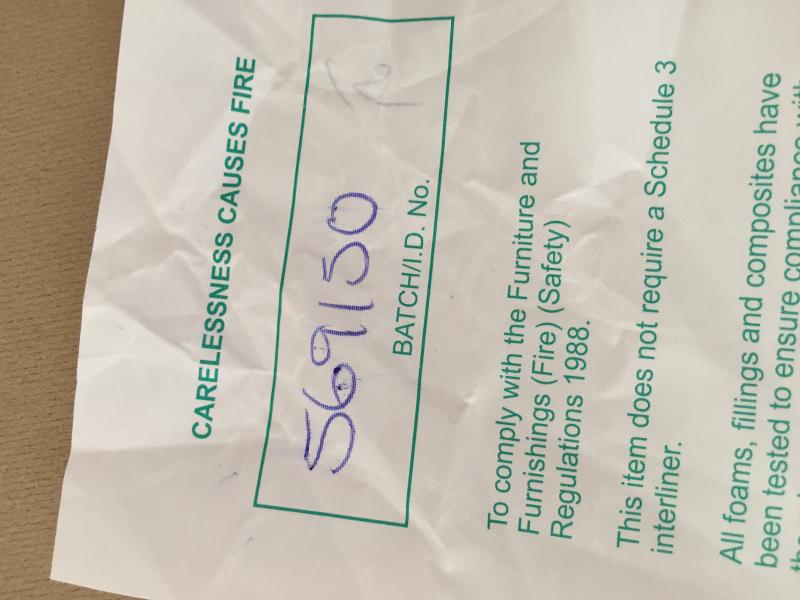 CARELESSNESS CAUSES FIRE
569150
BATCH/I.D. No.
To comply with the Furniture and
Furnishings (Fire) (Safety)
Regulations 1988.
This item does not require a Schedule 3
interliner.
All foams, fillings and composites have
been tested to ensure compliance with